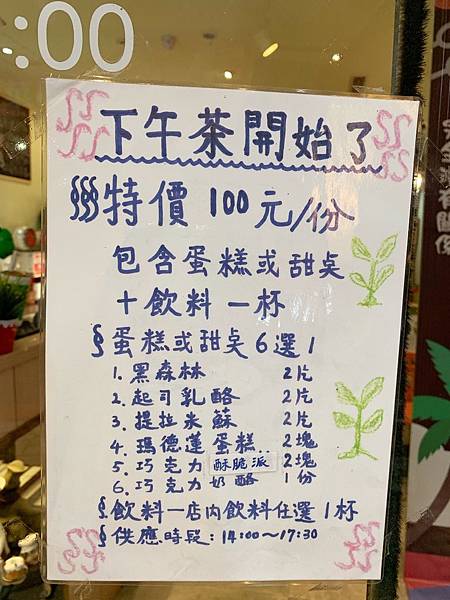 :00
下午茶開始了
特價100元/份
包含蛋糕或甜点
十飲料一杯
§蛋糕或甜点6選1
1. 黑森林 2片
2. 起司乳酪 2片
3. 提拉米蘇 2片
4. 瑪德蓮蛋糕.. 2塊
5. 巧克力酥脆派 2塊
6. 巧克力奶酪 1份
§飲料一店內飲料任選1杯
§供應時段:14:00~17:30